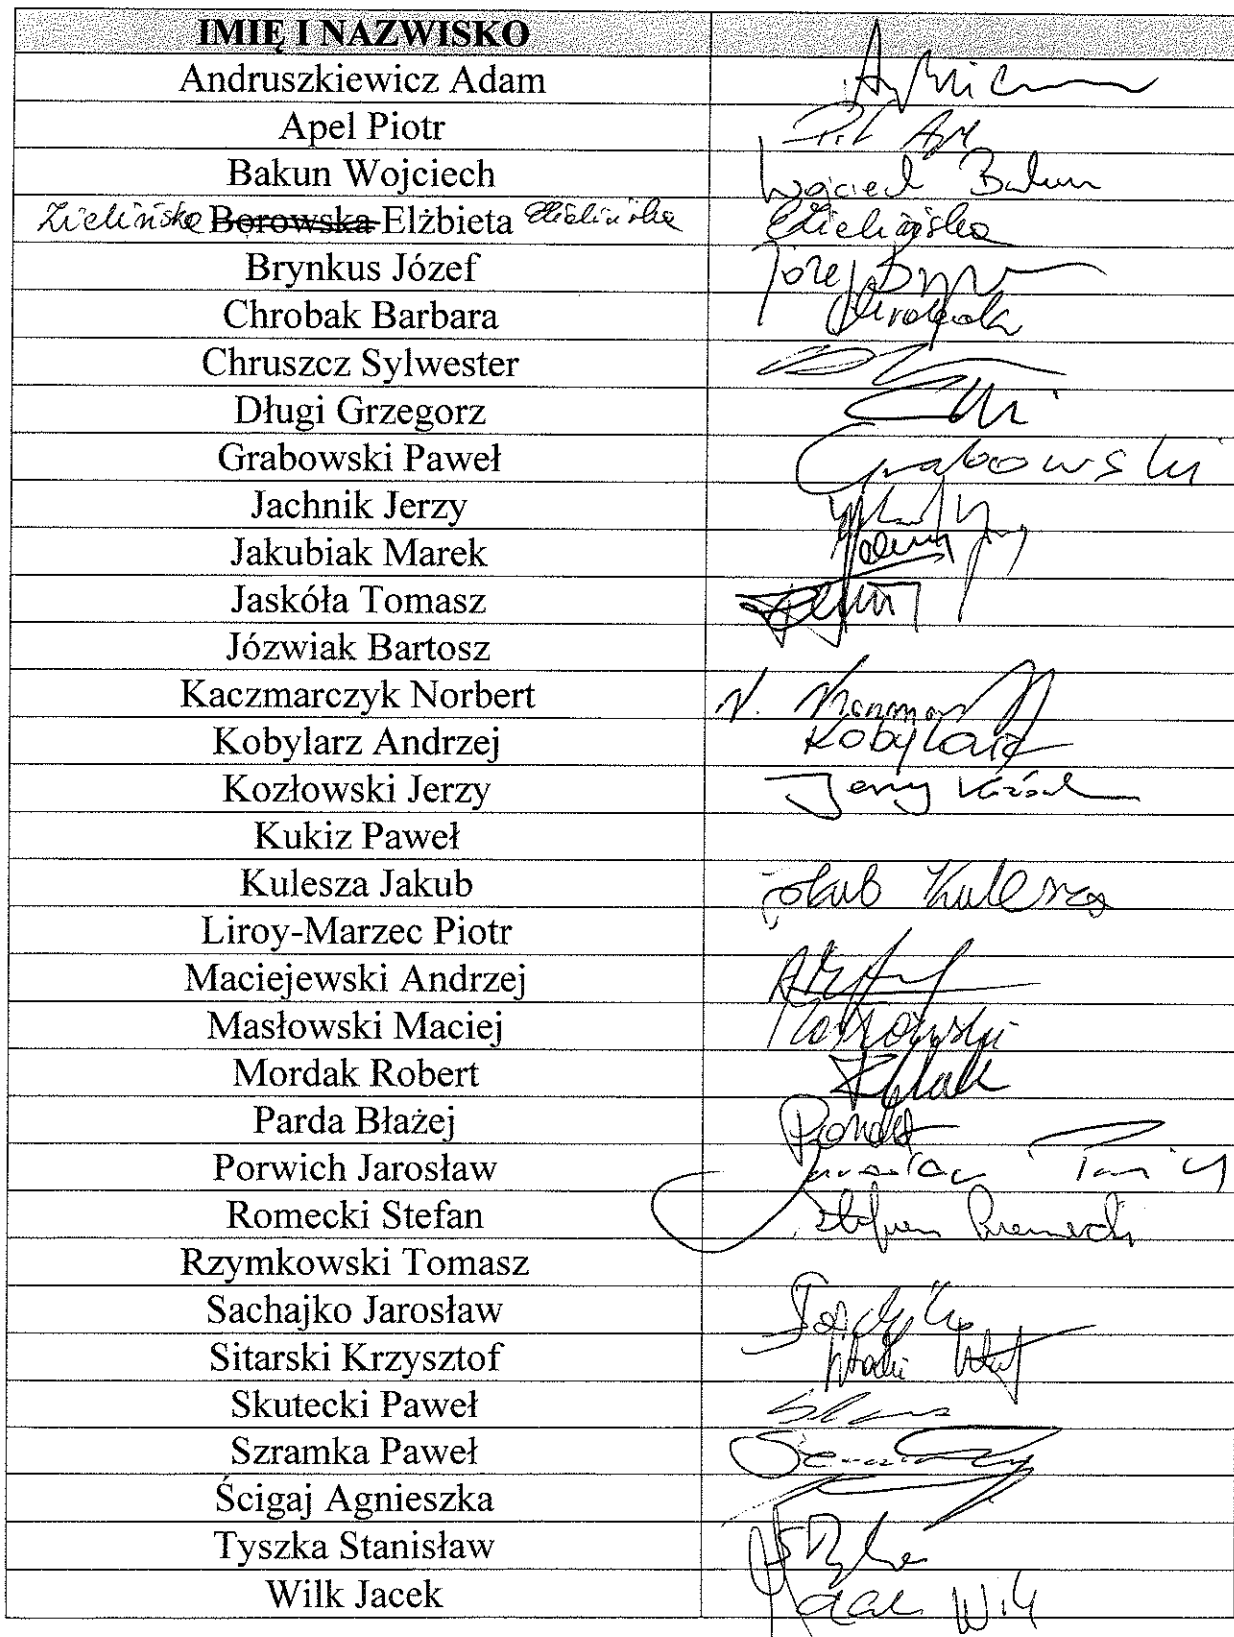 IMIĘ I NAZWISKO
Andruszkiewicz Adam
Apel Piotr
Bakun Wojciech Wojciech Bakun
Zielińska Borowska Elżbieta EZielińska EZielińska
Brynkus Józef Józef
Chrobak Barbara
Chruszcz Sylwester
Długi Grzegorz
Grabowski Paweł Grabowski
Jachnik Jerzy
Jakubiak Marek
Jaskóła Tomasz
Józwiak Bartosz
Kaczmarczyk Norbert N.
Kobylarz Andrzej Kobylarz
Kozłowski Jerzy Jerzy
Kukiz Paweł
Kulesza Jakub Jakub Kulesza
Liroy-Marzec Piotr
Maciejewski Andrzej
Masłowski Maciej Masłowski
Mordak Robert
Parda Błażej Parda
Porwich Jarosław Jarosław
Romecki Stefan Stefan Romecki
Rzymkowski Tomasz
Sachajko Jarosław
Sitarski Krzysztof
Skutecki Paweł
Szramka Paweł
Ścigaj Agnieszka
Tyszka Stanisław
Wilk Jacek Jacek Wilk